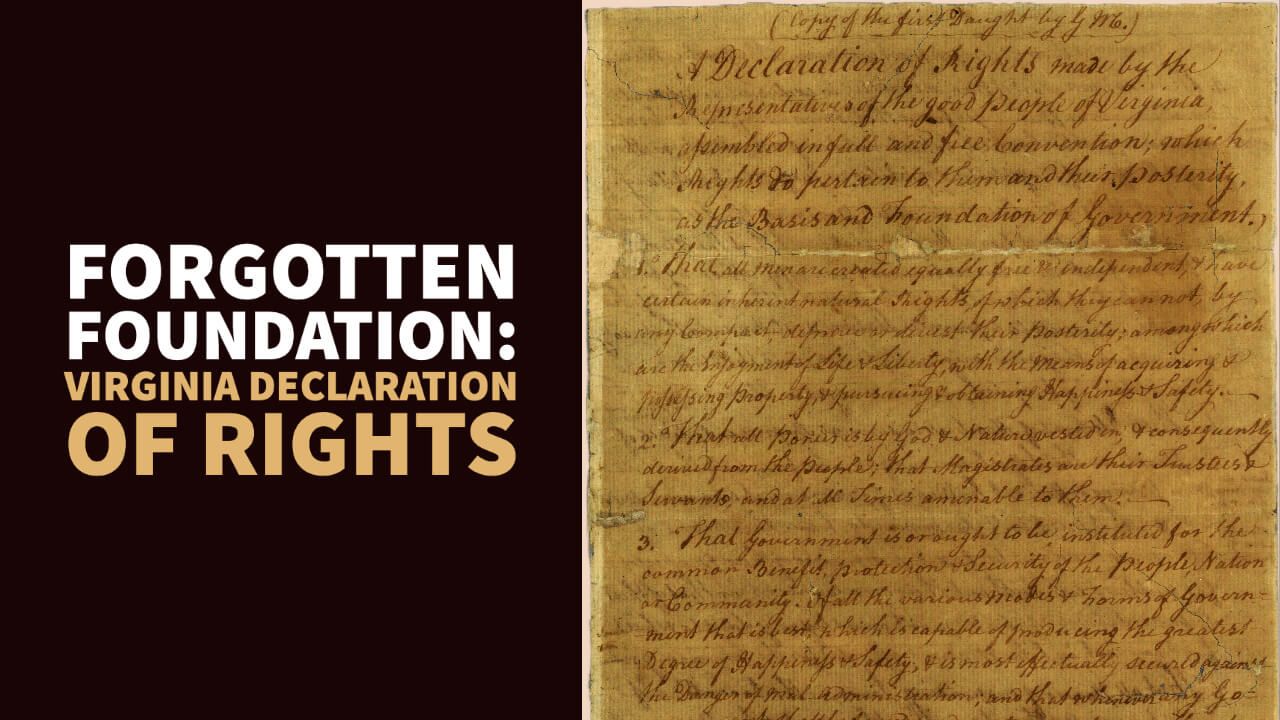 FORGOTTEN
FOUNDATION:
VIRGINIA DECLARATION
OF RIGHTS
(Copy of the first Daught by G M.)
A Declaration of Rights made by the
Representatives of the good people of Virginia,
assembled in full and free Convention; which
Rights do pertain to them and their posterity,
as the Basis and Foundation of Government.)
1. That all men are created equally free & independent, & have
certain inherent natural Rights, of which they cannot, by
any Compact, deprive or divest their Posterity; among which
are the Enjoyment of Life & Liberty, with the Means of acquiring &
possessing Property, & pursueing & obtaining Happiness & Safety.
2. That all Power is by God & Nature vested in, & consequently
derived from the People; that Magistrates are their Trustees &
Servants, and at all Times amenable to them.
3. That Government is or ought to be, instituted for the
common Benefit, protection & Security of the People, Nation
or Community. Of all the various Modes & Forms of Govern=
=ment that is best, which is capable of producing the greatest
Degree of Happiness & Safety, & is most effectually secured against
the Danger of mal-administration; and that whenever any Go-